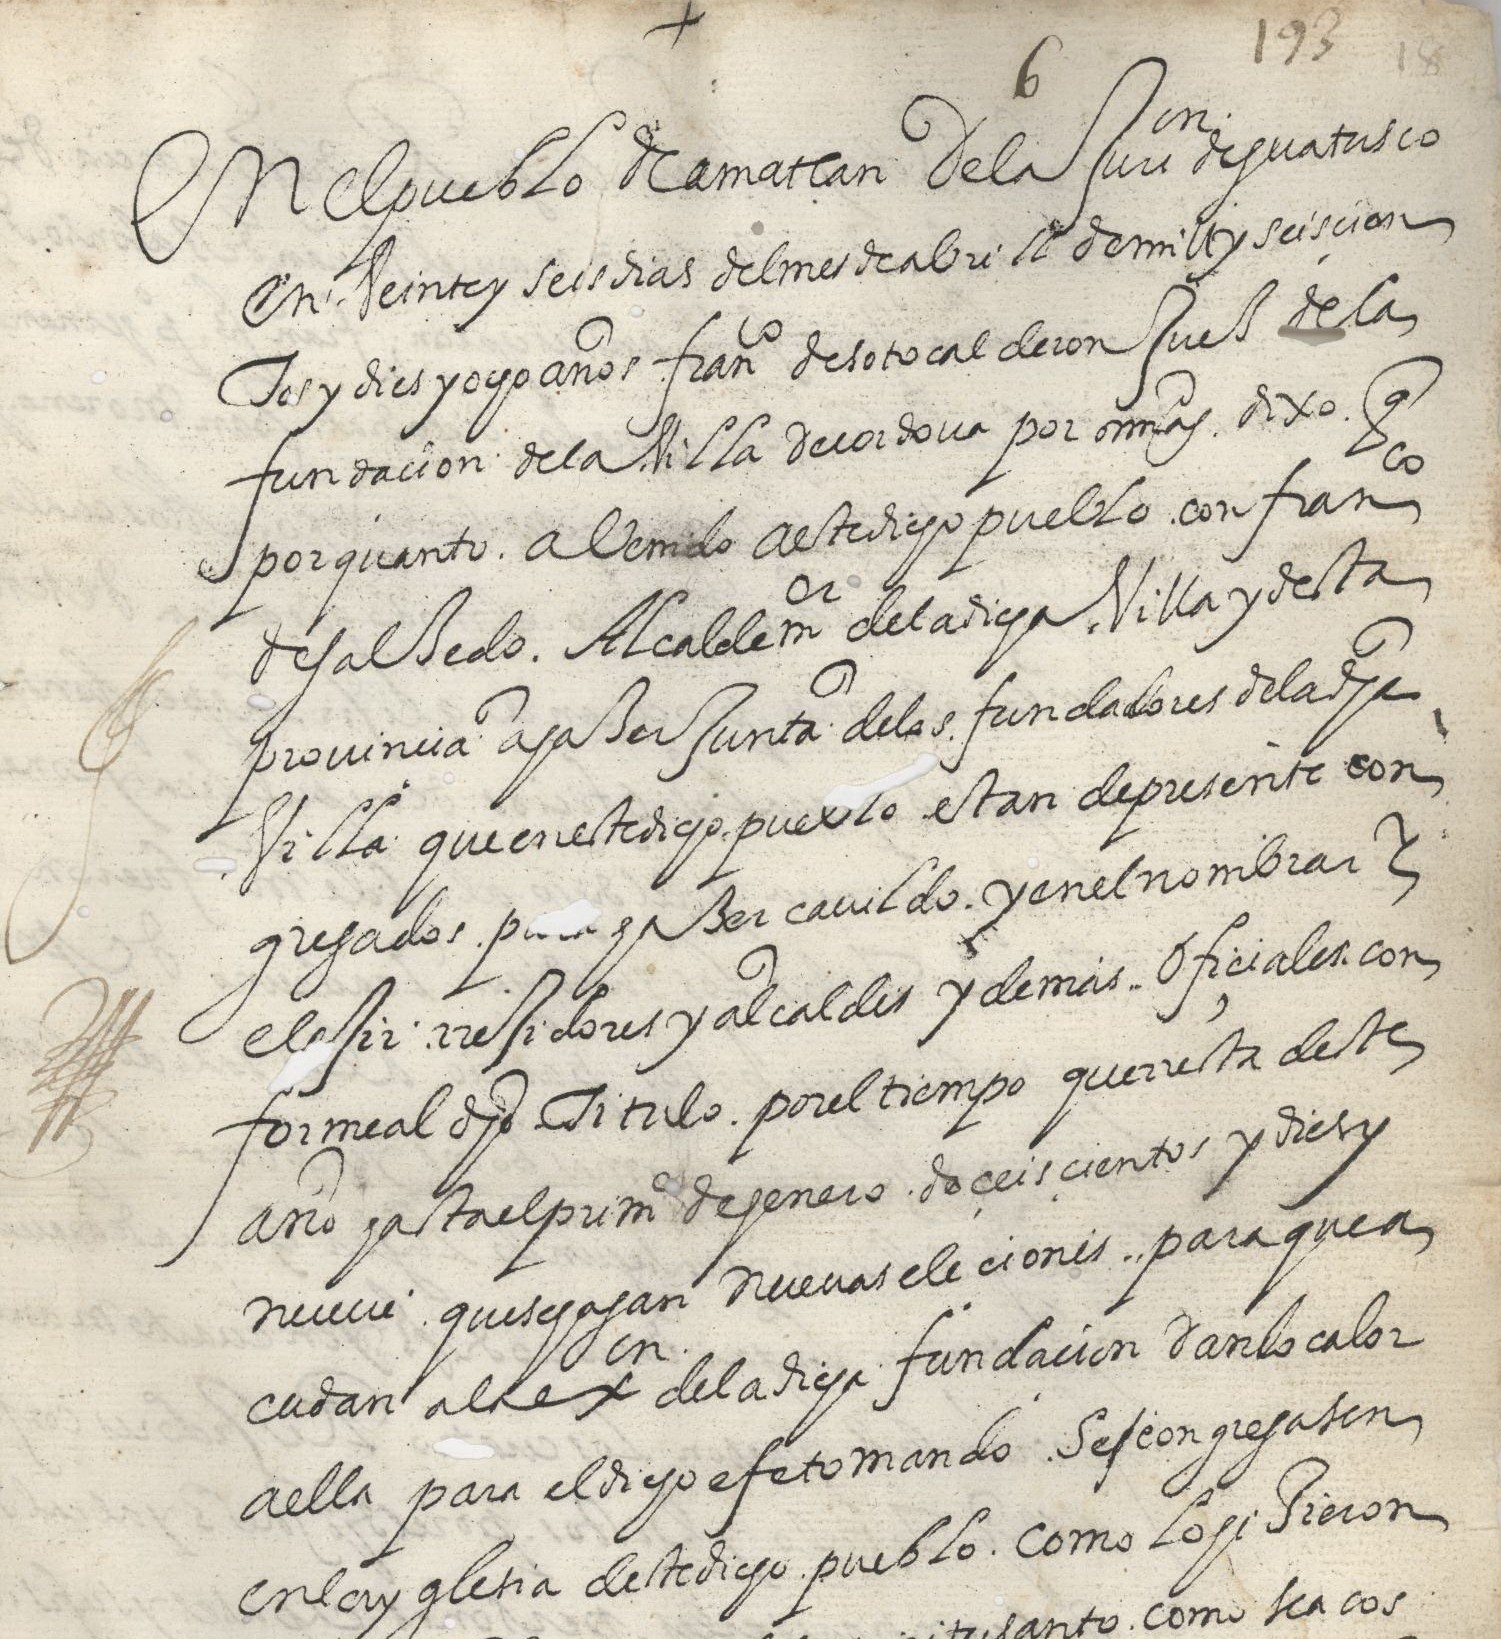 +
193 18
6
En el pueblo de amatlan de la Juri on de guatusco
en Veinte y seis dias del mes de abrill de mill y seiscien
tos y dies y ocho años fran co de soto calderon Jues de la
fundacion de la Villa de cordova por su mag. dixo. q
por quanto. a Venido a este dicho pueblo. con fran co
de galbedo. Alcalde m or de la dicha Villa y desta
provincia a haser Junta de los fundadores de la dha
Villa que en este dicho pueblo estan de presente con
gregados. para haser cavildo. y en el nombrar y
elegir. rregidores y alcaldes y demas.. oficiales. con
forme al dho Titulo. por el tiempo que rresta deste
año hasta el prim o de henero. de çeiscientos y dies y
nueve. que se hagan nuevas eleciones.. para que a
cudan a la ex on de la dicha fundacion dando calor
a ella para el dicho efeto mando. Se congregasen
en la yglesia deste dicho pueblo. como lo hisieron
santo. como sea cos